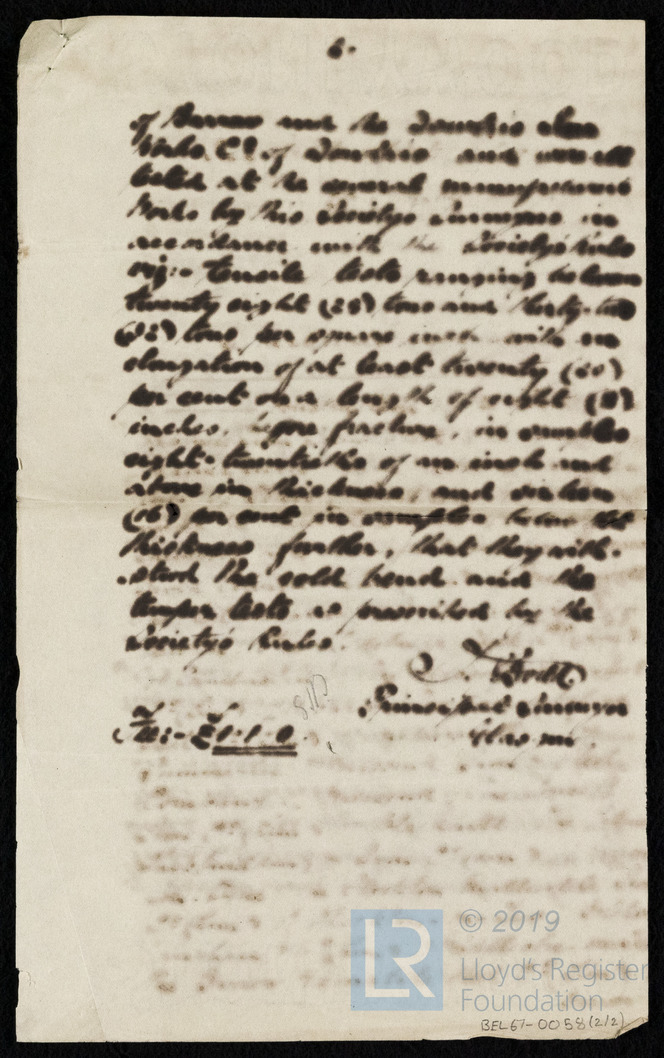 2.
of Barrow and the Dowlais Iron
Works Co. of Dowlais and were all
tested at the several manufacturers
Works by this Society's Surveyors in
accordance with the Society's Rules
viz:- Tensile tests ranging between
twenty eight (28) tons and thirty-two
(32) tons per square inch with an
elongation of at least twenty (20)
per cent on a length of eight (8)
inches, before fracture, in samples
eight-twentieths of an inch and
above in thickness, and sixteen
(16) per cent in samples below that
thickness further, that they with-
-stood the cold bend and the
temper tests as prescribed by the
Society's Rules.
Principal Surveyor
Fee:- £1.1.0
© 2019
LR
Lloyd's Register
Foundation
BEL67-0058(2/2)